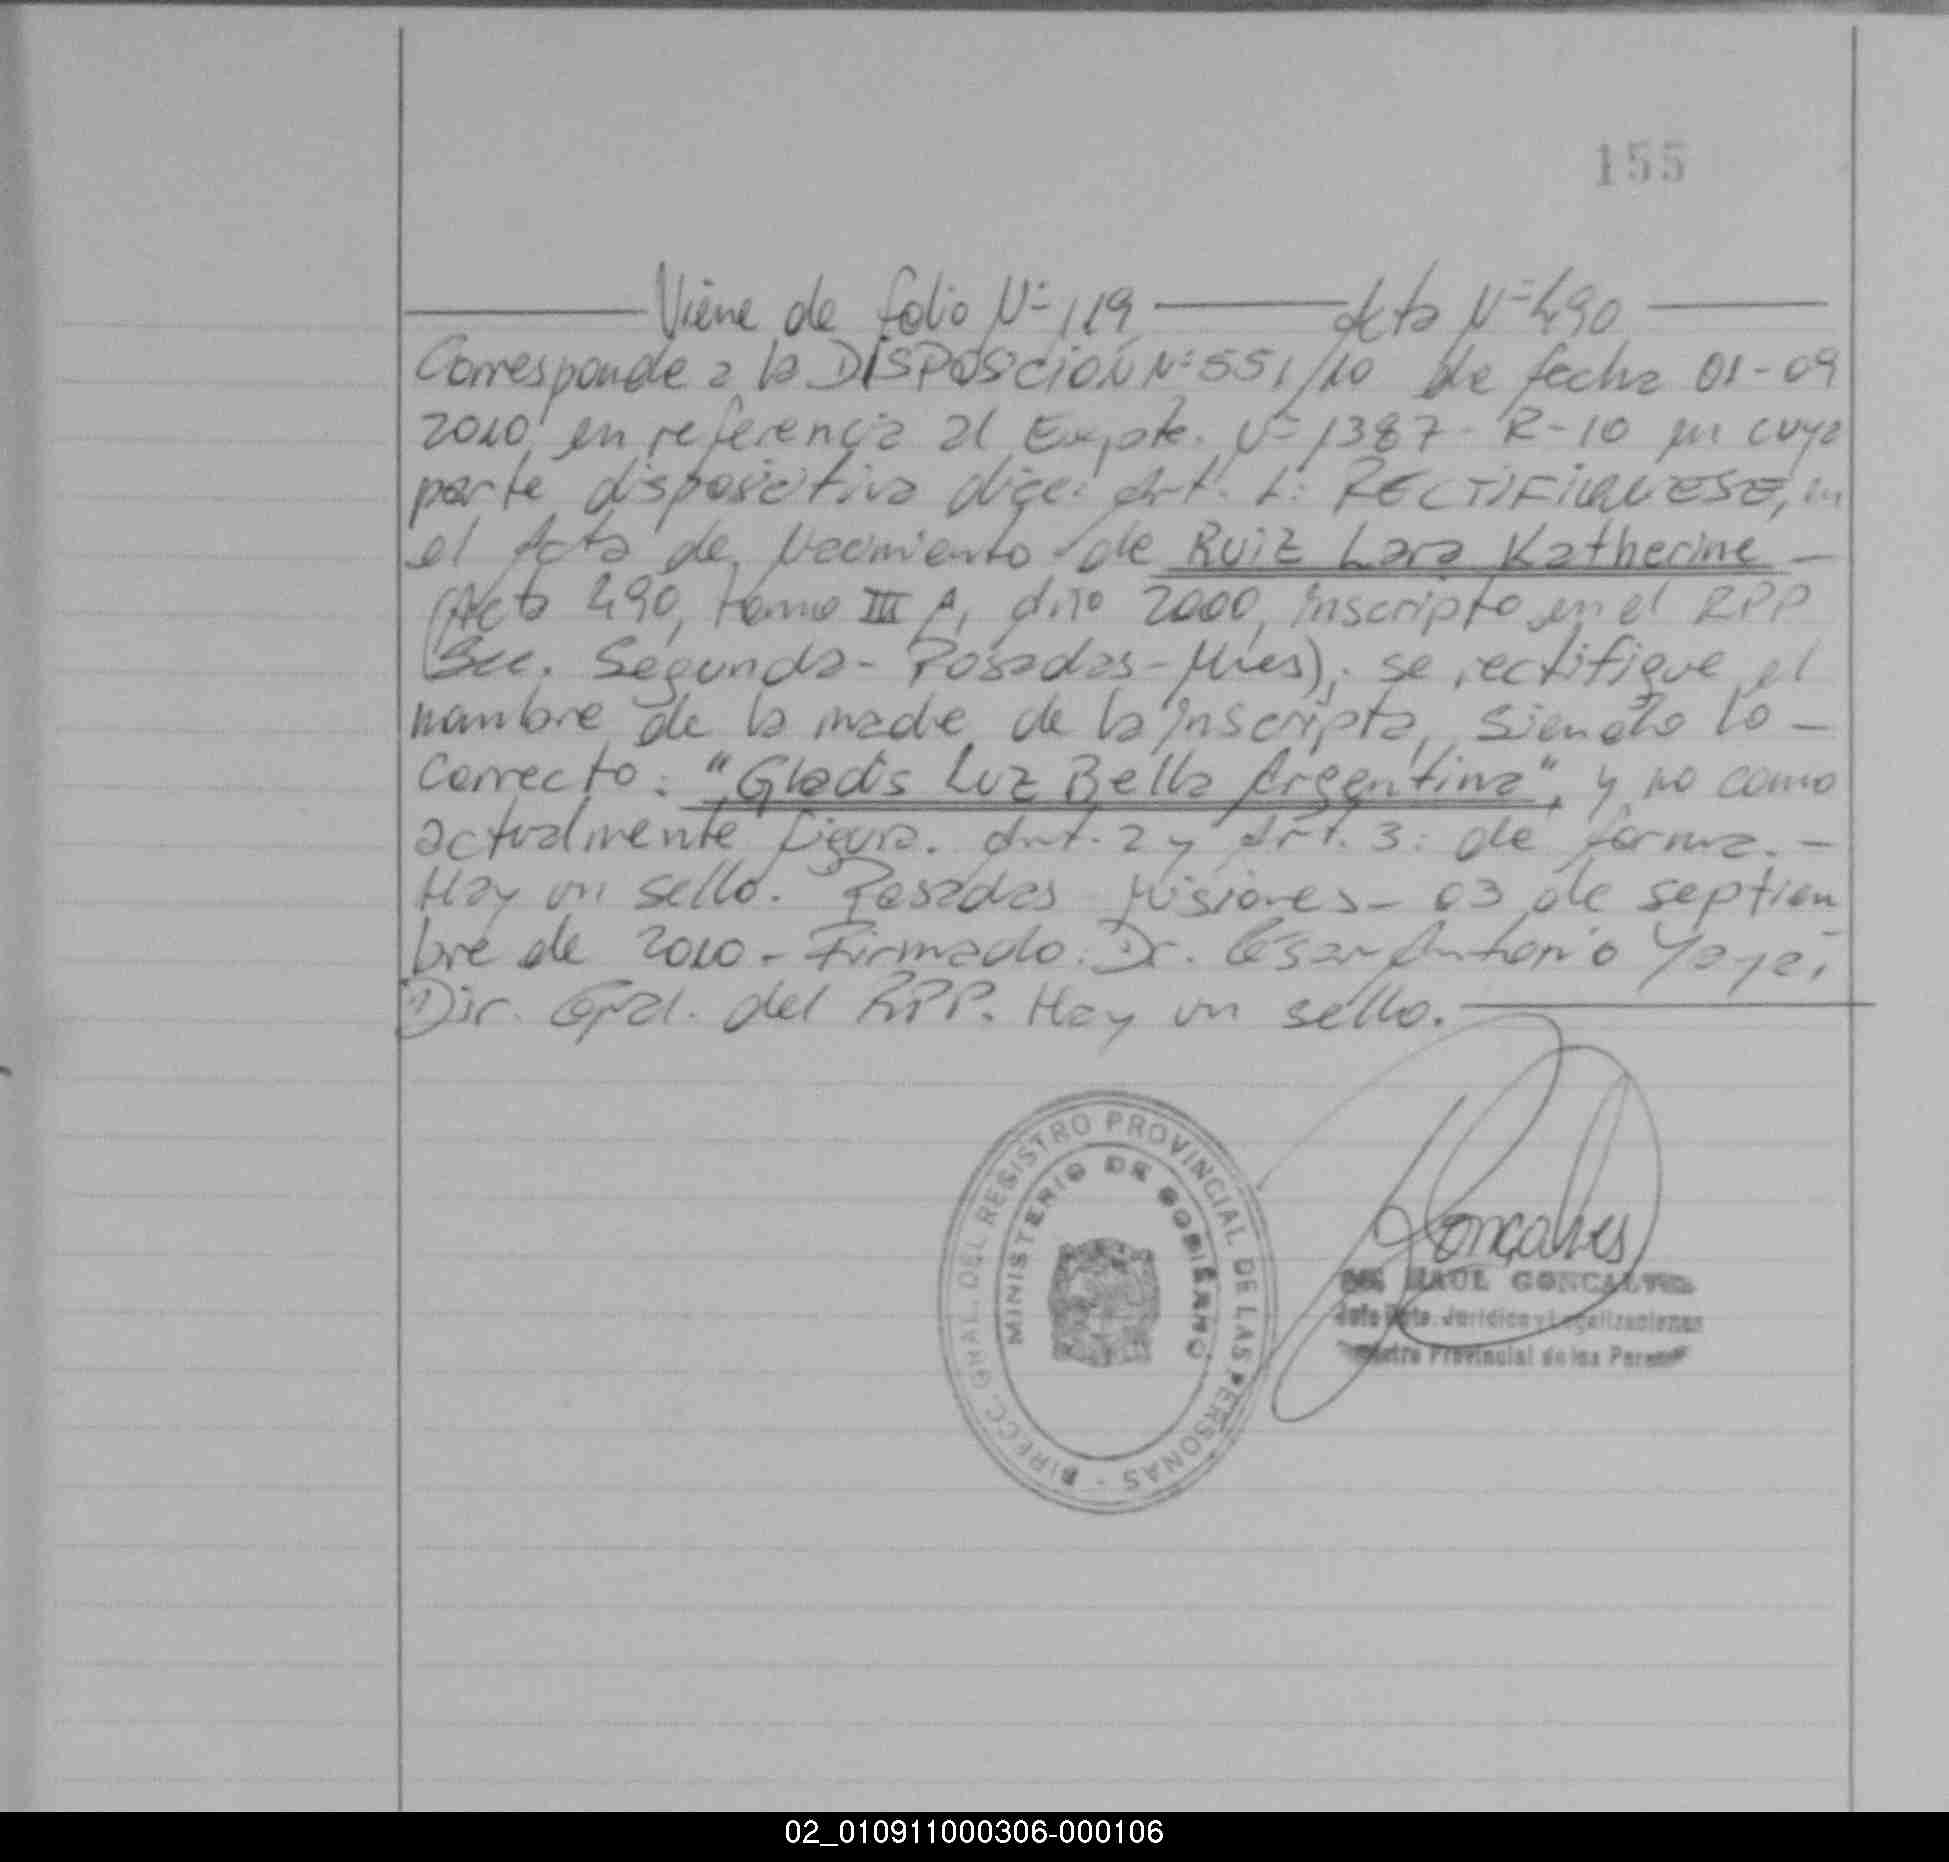 155
Viene de folio Nº 119 — Acta Nº 490
Corresponde a la DISPOSICIÓN Nº 551/10 de fecha 01-09
2010, en referencia al Expte. Nº 1387-R-10 en cuya
parte dispositiva dice: Art. 1: RECTIFIQUESE, en
el Acta de Nacimiento de Ruiz Lara Katherine –
(Acta 490, tomo III A, año 2000, inscripto en el RPP
Sec. Segunda - Posadas - Mnes), se rectifique el
nombre de la madre de la inscripta, siendo lo –
correcto: "Gladis Luz Bella Argentina", y no como
actualmente figura. Art. 2 y Art. 3: de forma. –
Hay un sello. Posadas Misiones - 03 de septiem
bre de 2010 - Firmado: Dr. César Antonio
Dir. Gral. del RPP. Hay un sello.
DIRECC. GRAL. DEL REGISTRO PROVINCIAL DE LAS PERSONAS -
MINISTERIO DE GOBIERNO
Goncalves
RAUL GONCALVES
Jefe Dpto. Jurídico y Legalizaciones
Registro Provincial de las Personas
02_010911000306-000106